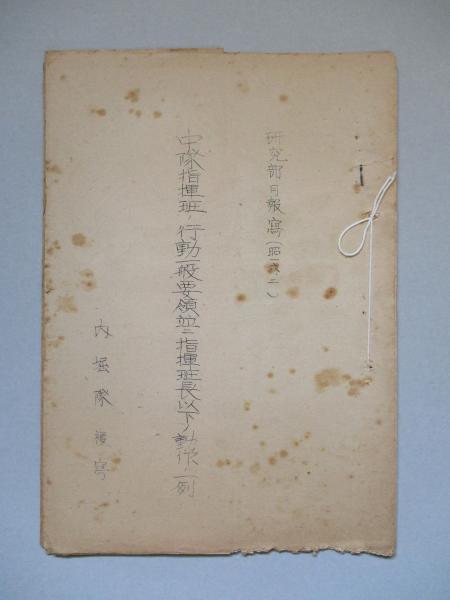 研究部月報寫(昭一六、二)
中隊指揮班ノ行動一般要領並ニ指揮班長以下ノ動作ノ一例
内堀隊複寫